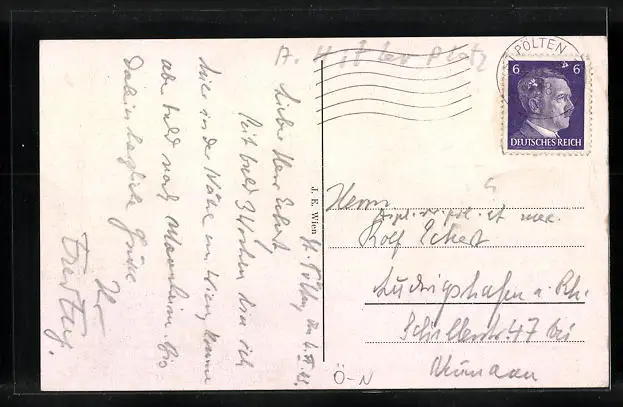 A. Hitler Platz
St. Pölten, den
Lieber Herr Eckert
Seit bald 3 Wochen bin ich
hier in der Nähe von Wien, komme
aber bald nach Mannheim. Bis
dahin herzliche Grüße
Ihr
Freytag.
J. E. Wien
PÖLTEN
6 6
DEUTSCHES REICH
Herrn
Rolf Eckert
Ludwigshafen a. Rh.
Schillerstr. 47 bei
Neumann
Ö-N